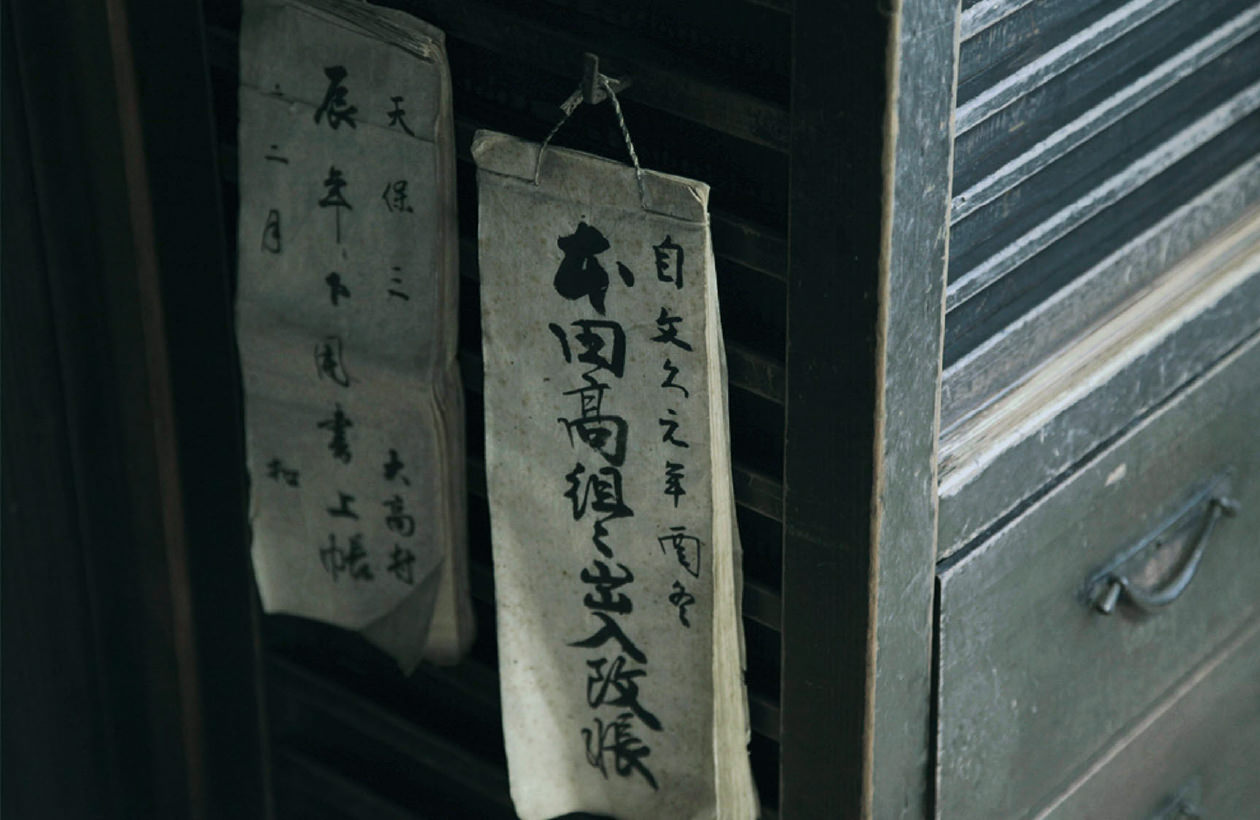 自文久元年酉冬
本田高組々出入改帳
天保三 大高村
辰年下用書上帳
二月 扣